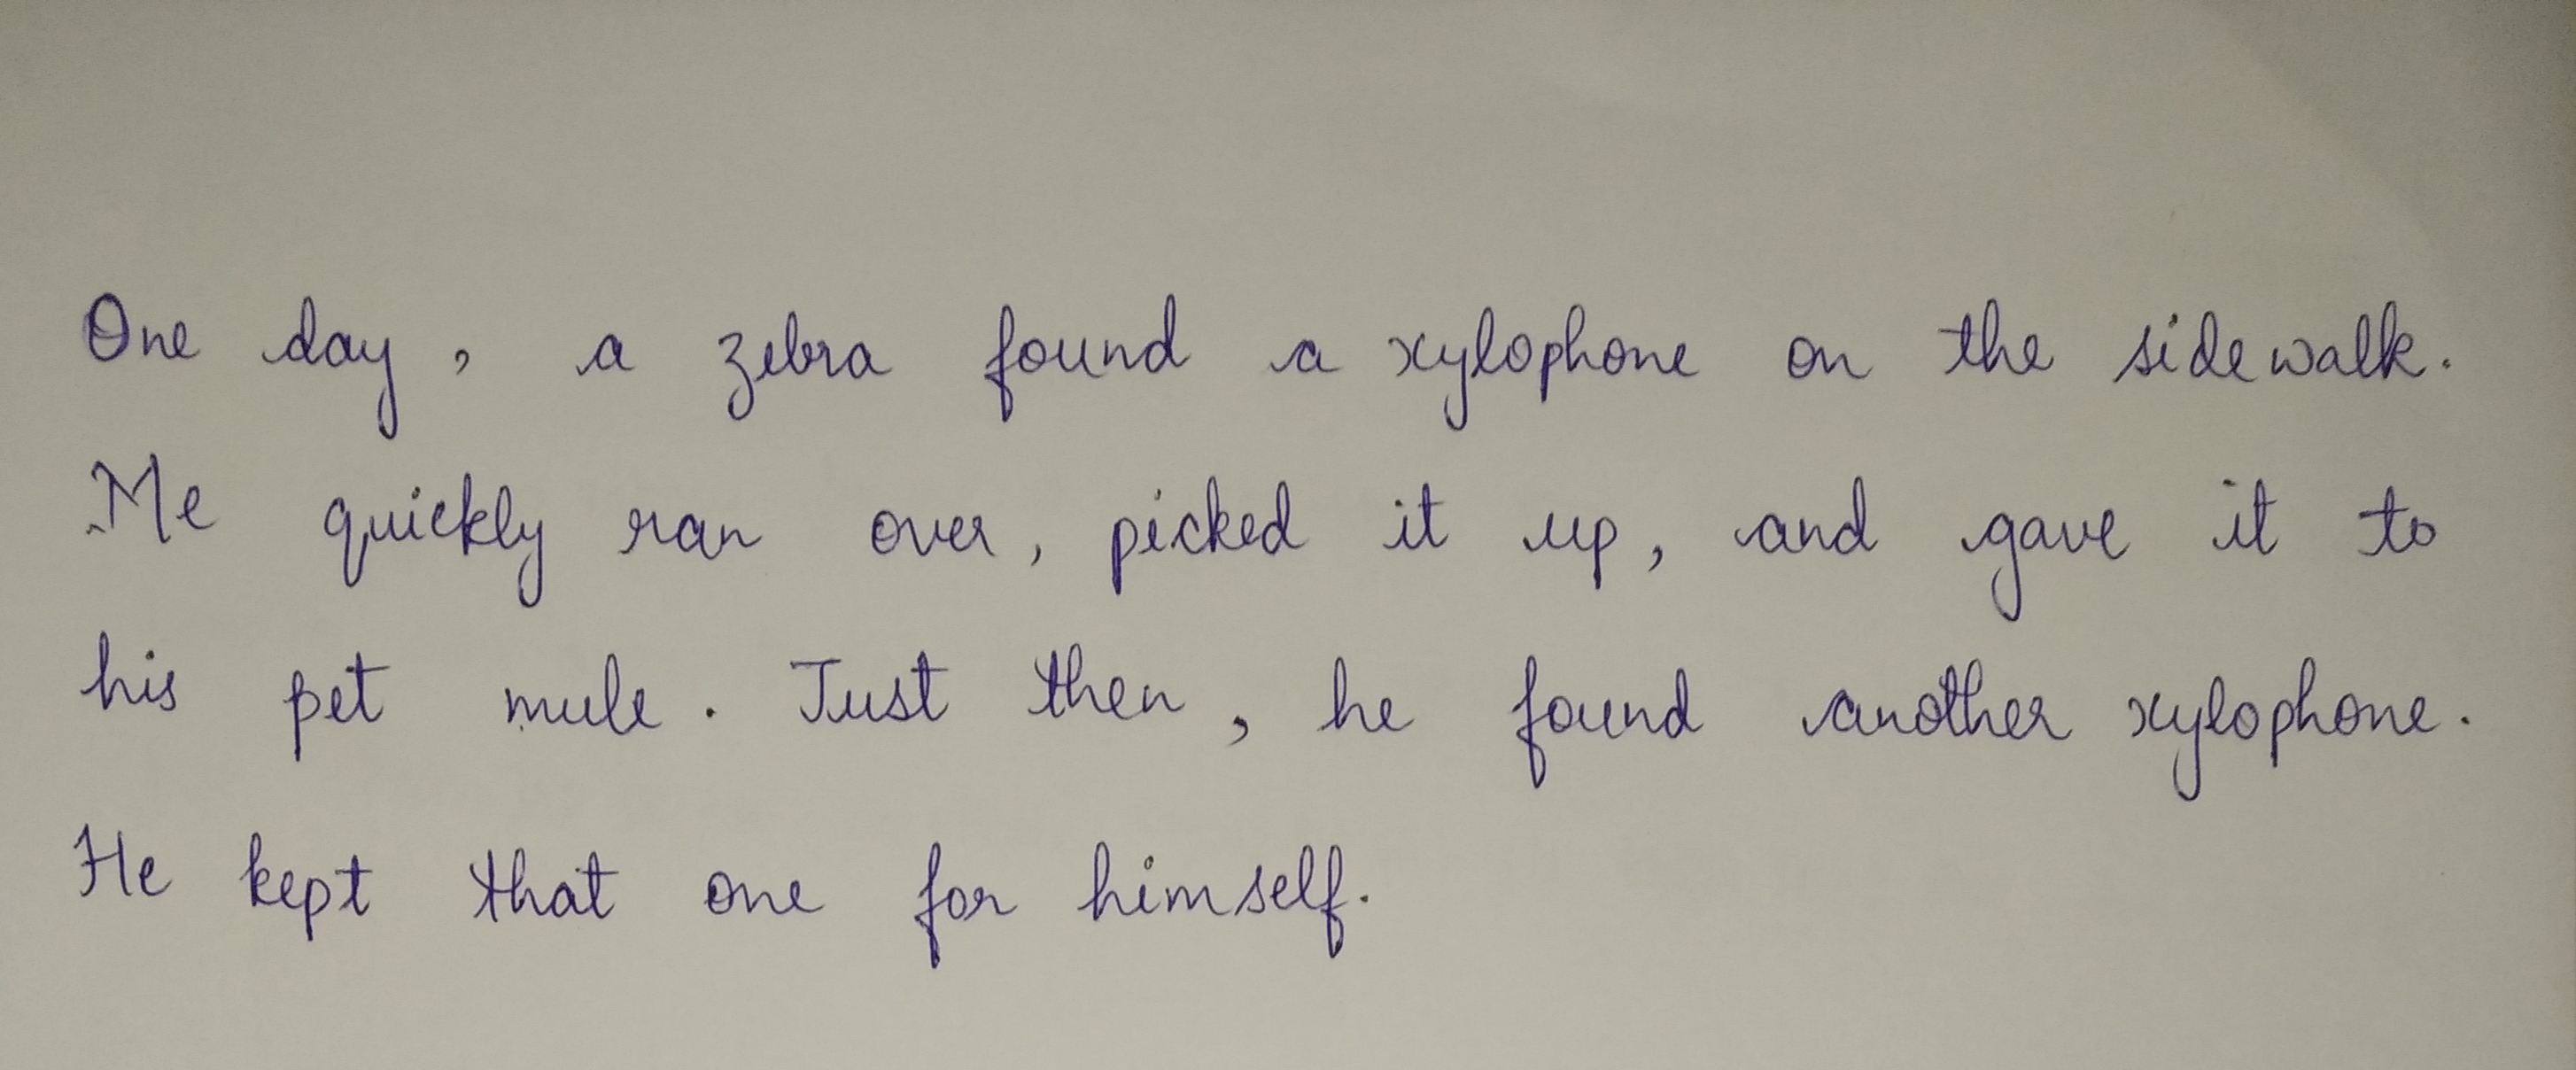 One day, a zebra found a xylophone on the sidewalk.
Me quickly ran over, picked it up, and gave it to
his pet mule. Just then, he found another xylophone.
He kept that one for himself.